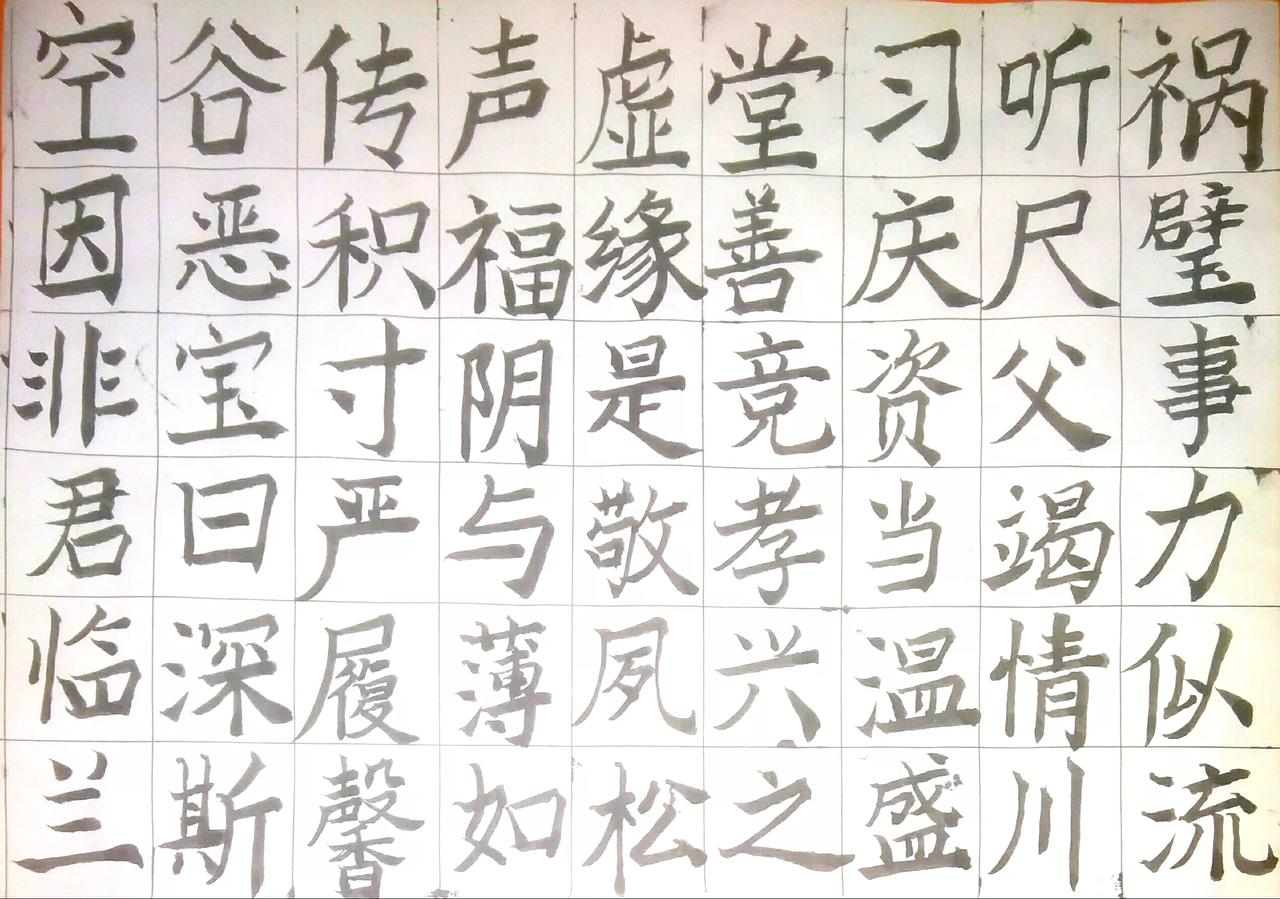 空谷传声虚堂习听祸
因恶积福缘善庆尺璧
非宝寸阴是竞资父事
君曰严与敬孝当竭力
临深履薄夙兴温情似
兰斯馨如松之盛川流